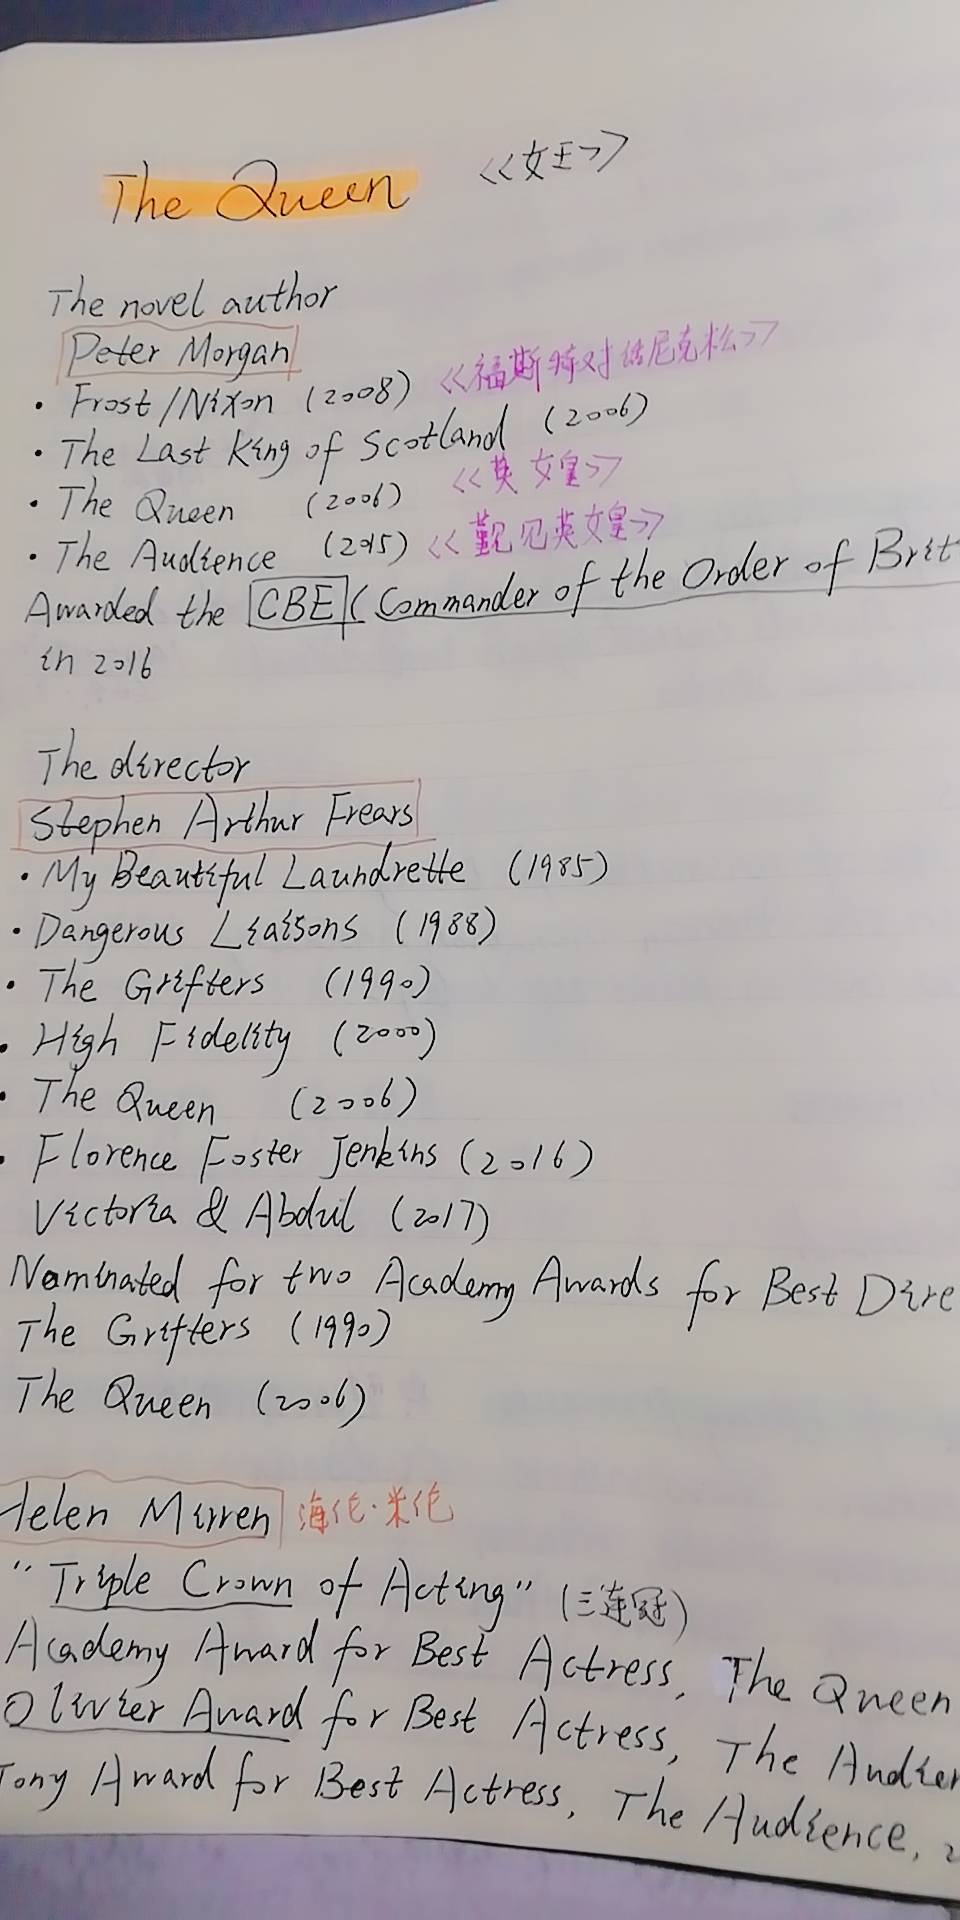 The Queen <<女王>>
The novel author
Peter Morgan
• Frost/Nixon (2008) <<福斯特对话尼克松>>
• The Last King of Scotland (2006)
• The Queen (2006) <<英女皇>>
• The Audience (2015) <<觐见英女皇>>
Awarded the CBE (Commander of the Order of Brit
in 2016
The director
Stephen Arthur Frears
• My Beautiful Laundrette (1985)
• Dangerous Liaisons (1988)
• The Grifters (1990)
• High Fidelity (2000)
• The Queen (2006)
• Florence Foster Jenkins (2016)
Victoria & Abdul (2017)
Nominated for two Academy Awards for Best Dire
The Grifters (1990)
The Queen (2006)
Helen Mirren 海伦·米伦
"Triple Crown of Acting" (三连冠)
Academy Award for Best Actress, The Queen
Olivier Award for Best Actress, The Audien
Tony Award for Best Actress, The Audience, 2